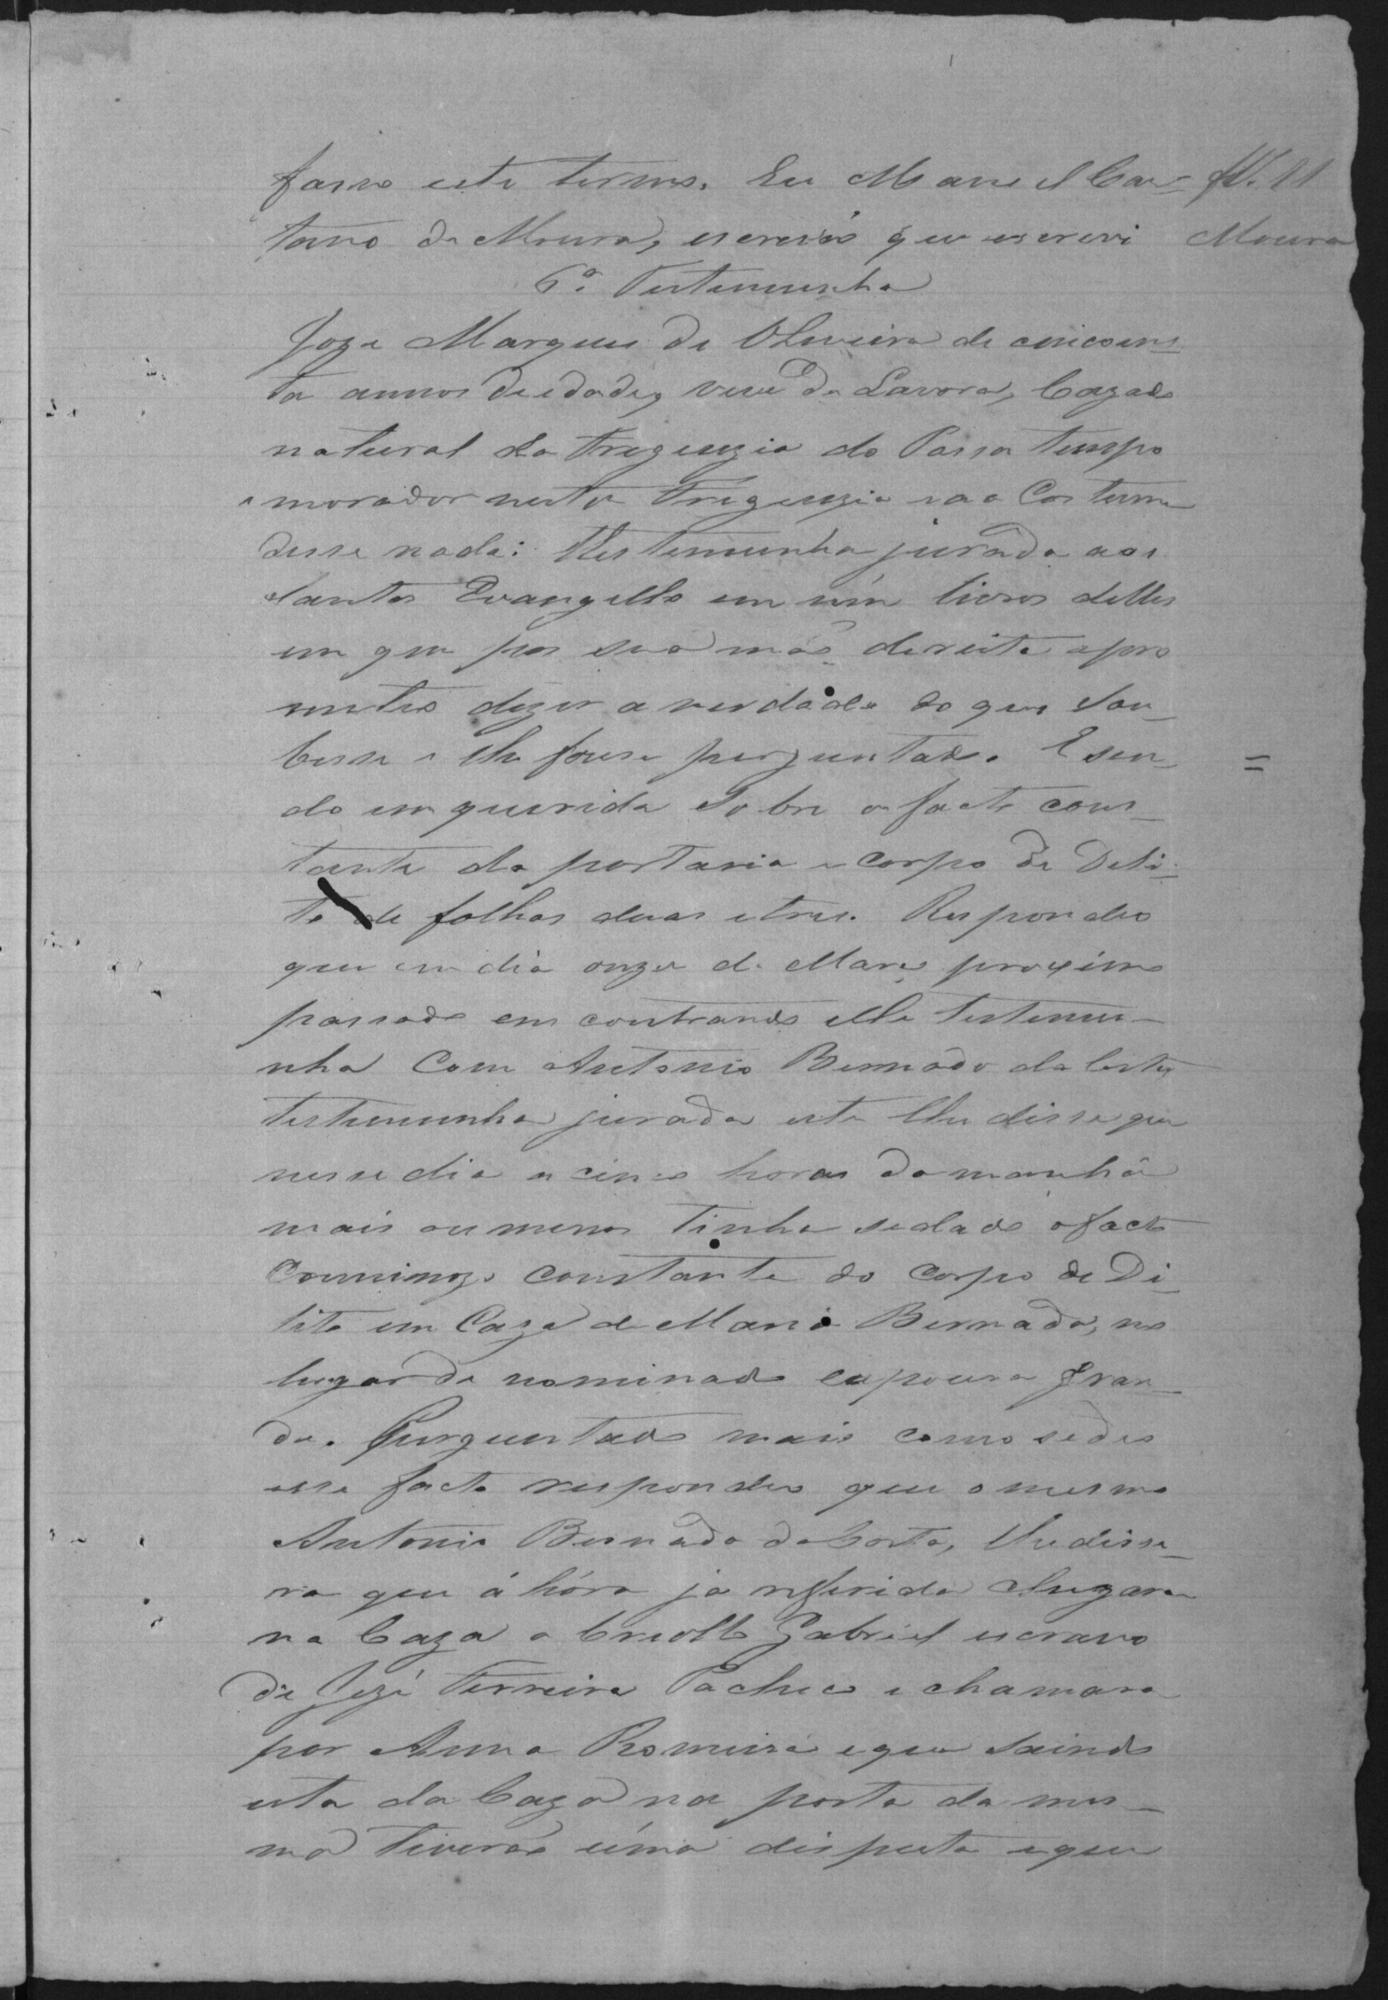 fasso este termo. Eu Manoel Cae- fl. 11
tano de Moura, escrivão que escrevi Moura
6ª Testemunha
Joze Marques de Oliveira de cincoen-
ta annos de edade, vive da Lavora, Cazado
natural da Fregenzia do Passa tempo
e morador nesta Fregenzia e ao Costume
disse nada: Testemunha jurada aos
santos Evangelho em um livros delles
em que pos sua mão direita e pro
meteo dizer a verdade do que sou-
besse e lhe fosse perguntado. E sen-
do emquerida sobre o facto cons-
tante da portaria e corpo de Deli-
to de folhas duas e tres. Respondeo
que em dia onze de Março proximo
passado em contrando elle testemu-
nha com Antonio Bernado da Costa,
testemunha jurada este lhe disse que
nesse dia as cinco horas da manhã
mais ou menos tinha se dado o facto
Criminozo constante do corpo de Di-
lito em Caza de Maria Bernada, no
lugar de nominado capoeira gran-
de. Perguntado mais como se deo
esse facto respondeo que o mesmo
Antonio Bernado da Costa, lhe disse-
ra que á hóra ja referida chegara
na Caza o Criollo Gabriel escravo
de Jozé Ferreira Pacheco e chamara
por Anna Romeira e que saindo
esta da Caza na porta da mes-
ma tiverão uma disputa e que